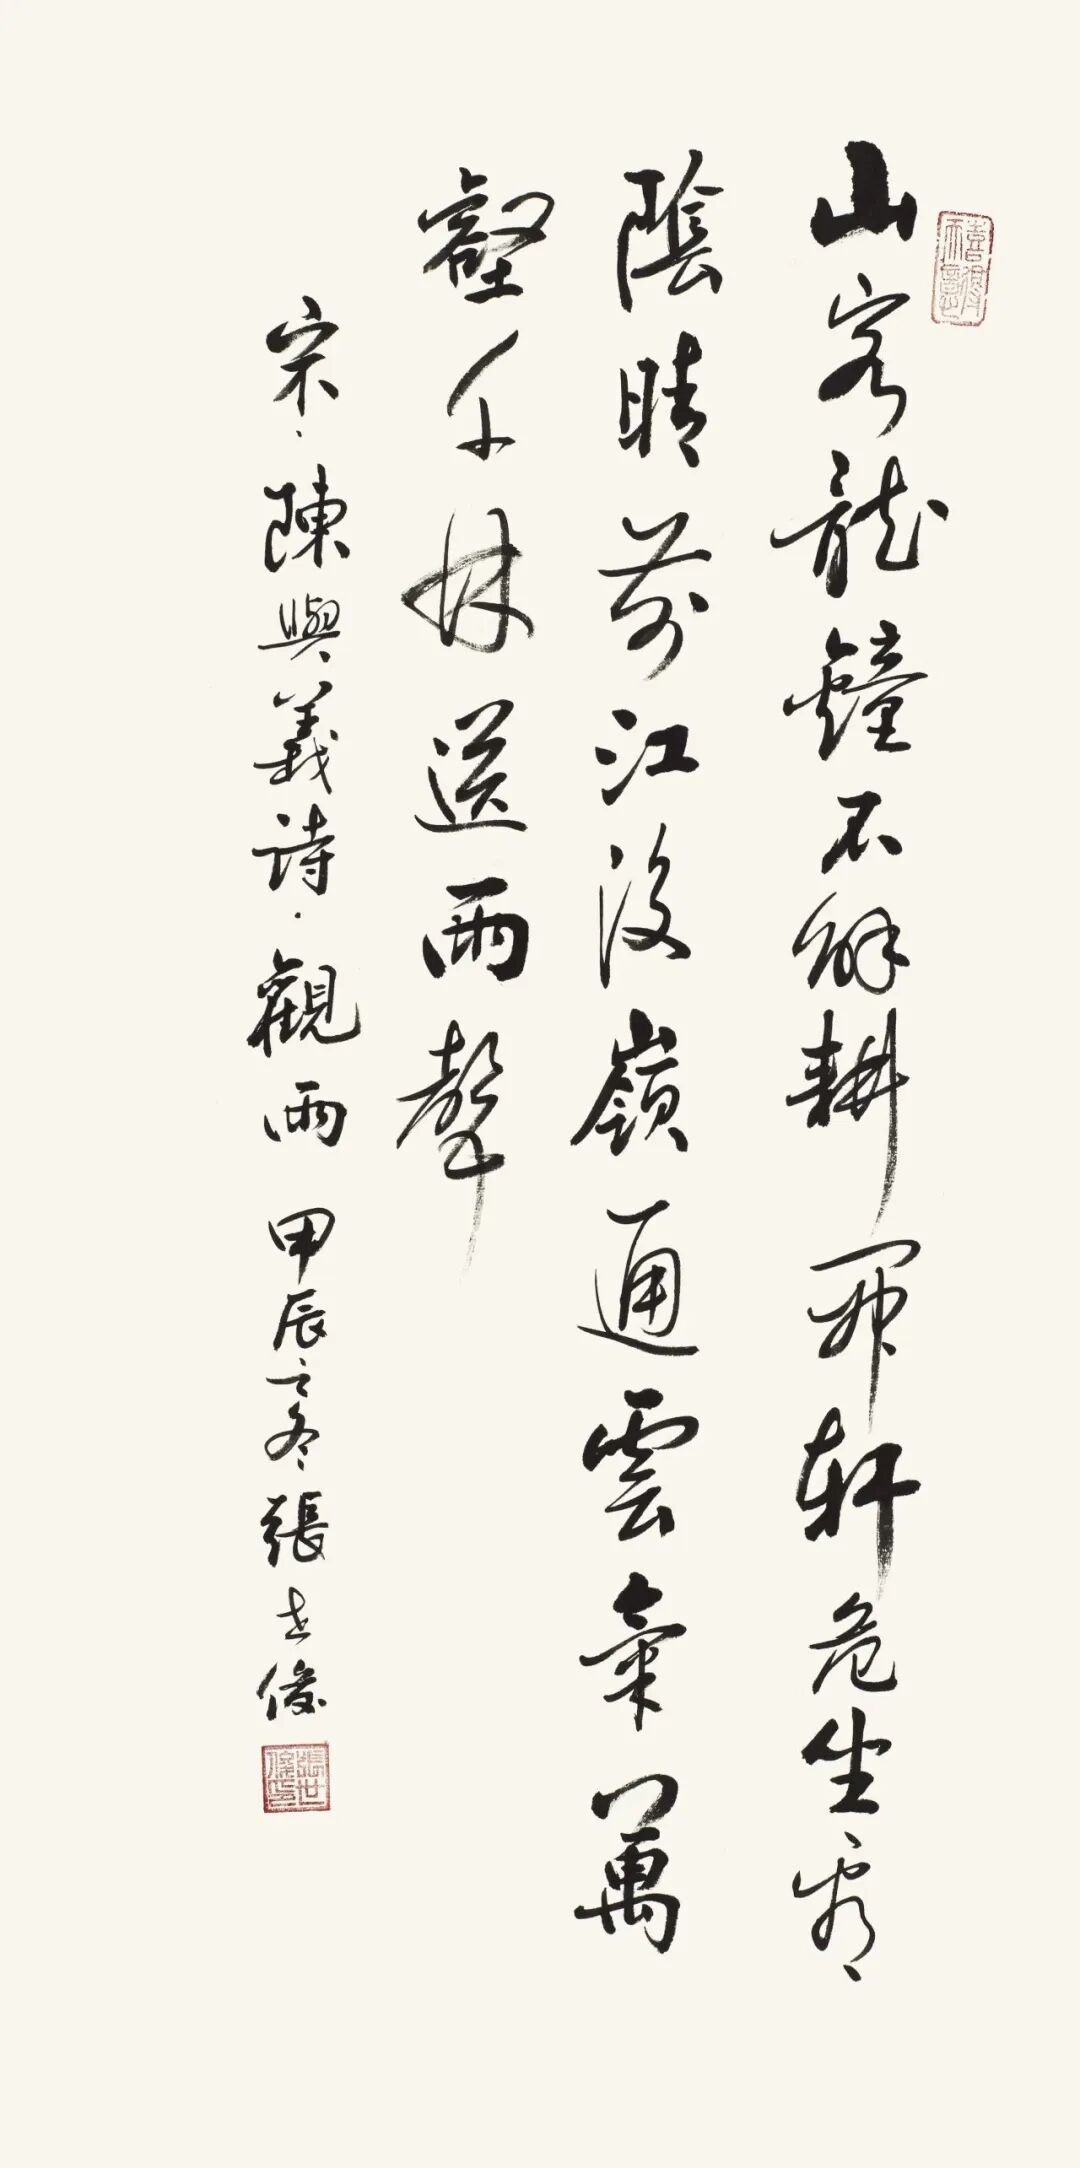 山客龍鐘不解耕開軒危坐看
陰晴前江後嶺通雲氣萬
壑千林送雨聲
宋·陳與義詩·觀雨 甲辰之冬 張世俊
張世俊印